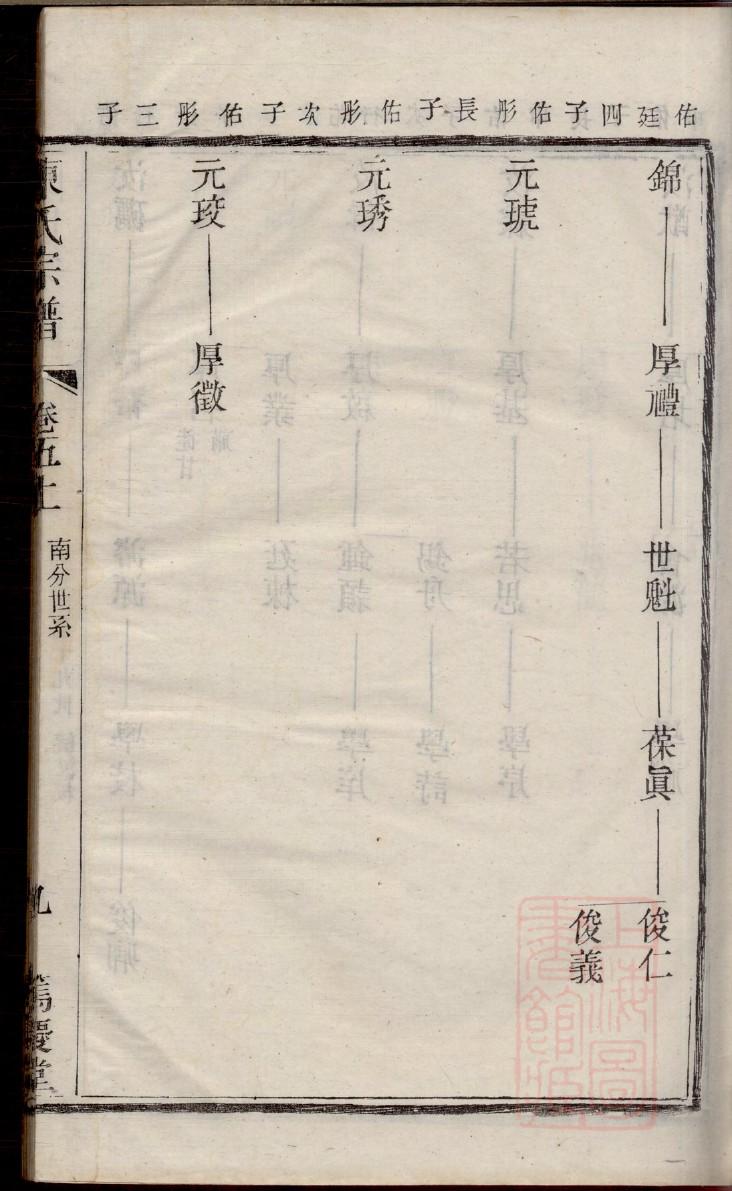 佑廷四子佑彤長子佑彤次子佑彤三子
錦 厚禮 世魁 葆眞 俊仁
俊義
元琥
元琇
元㻏 厚徵
陳氏宗譜 卷五上 南分世系 九 篤慶堂
上海圖書館藏